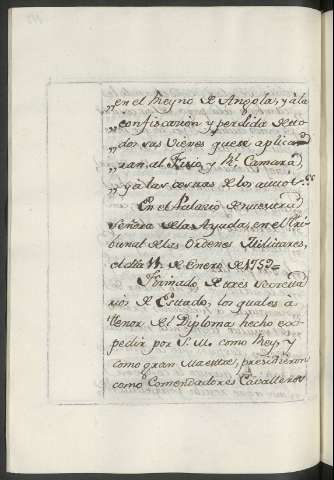 „en el Reyno de Angola, y à la
„confiscacion y perdida de to
„dos sus vienes que se aplica
„ran al Fisco y Rl. Camara
„y à las costas de los autos.
En el Palacio de nuestra
Señora de la Ayuda, en el Tri
bunal de las Ordenes Militares,
el dia de Enero de 1759=
Firmado de tres Secreta
rios de Estado, los quales à
tenor de el Diploma hecho ex
pedir por S. M. como Rey, y
como gran Maestre, presidieron
como Comendadores Cavalleros